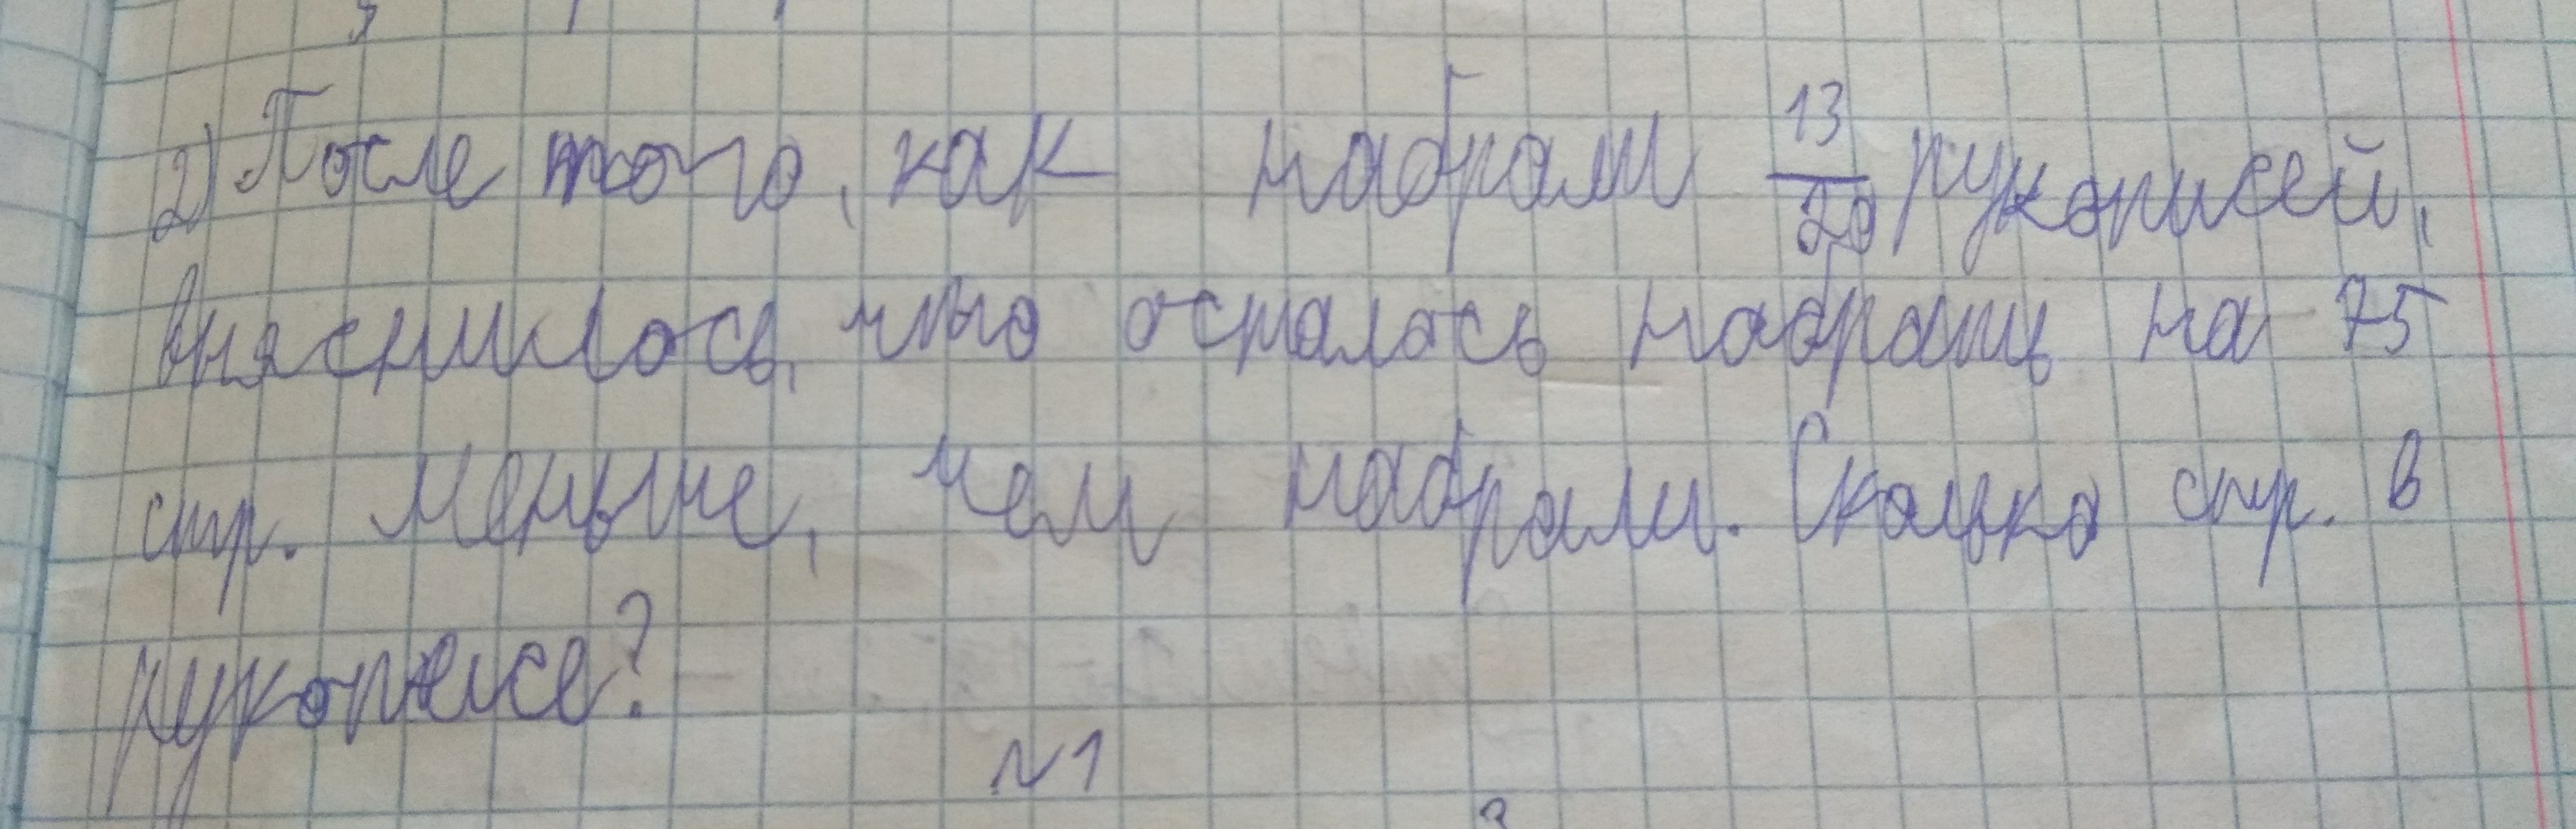 2) После того, как набрали 13/20 рукописей,
выяснилось, что осталось набрать на 75
стр. меньше, чем набрали. Сколько стр. в
рукописе?
№1